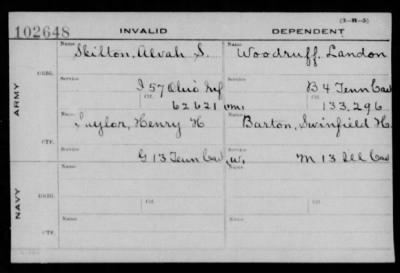 (3-H-5)
102648 INVALID DEPENDENT
Name Name
Skilton, Alvah S. Woodruff, Landon
ORIG.
Service Service
I 57 Ohio Inf B 4 Tenn Cav
Ctf. Ctf.
62621 133,296
ARMY
Name Name
Taylor, Henry H Barton, Swinfield H.
CTF.
Service Service
G 13 Tenn Cav M 13 Ill Cav
Name Name
ORIG. Ctf. Ctf.
Service Service
NAVY
Name Name
CTF.
Service Service